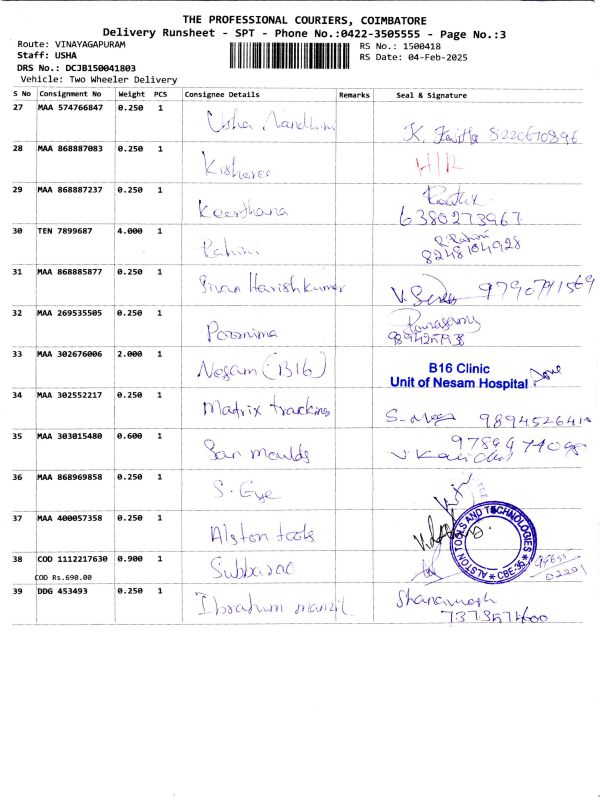 THE PROFESSIONAL COURIERS, COIMBATORE
Delivery Runsheet - SPT - Phone No.:0422-3505555 - Page No.:3
Route: VINAYAGAPURAM
Staff: USHA
DRS No.: DCJB150041803
Vehicle: Two Wheeler Delivery
RS No.: 1500418
RS Date: 04-Feb-2025
S No Consignment No Weight PCS Consignee Details Remarks Seal & Signature
27 MAA 574766847 0.250 1 Usha K. 8220670896
28 MAA 868887083 0.250 1 Kishore
29 MAA 868887237 0.250 1 Keerthana
6380273967
30 TEN 7899687 4.000 1 Rahini R. Rahini
8248104928
31 MAA 868885877 0.250 1 Harishkumar
32 MAA 269535505 0.250 1 Poornima
33 MAA 302676006 2.000 1 Nesam (B16) B16 Clinic
Unit of Nesam Hospital
34 MAA 302552217 0.250 1 Matrix tracking
35 MAA 303015480 0.600 1 San moulds
36 MAA 868969858 0.250 1 S. Eye
37 MAA 400057358 0.250 1 Alston tools ALSTON TOOLS AND TECHNOLOGIES CBE-35
38 COD 1112217630 0.900 1 Subbarao
COD Rs.690.00
39 DDG 453493 0.250 1 Ibrahim manzil